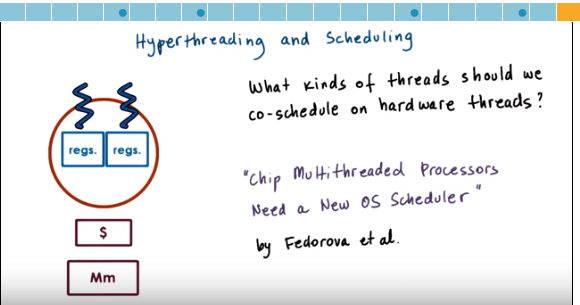 Hyperthreading and Scheduling
What kinds of threads should we
co-schedule on hardware threads?
regs. regs.
"Chip Multithreaded Processors
Need a New OS Scheduler"
by Fedorova et al.
$
Mm